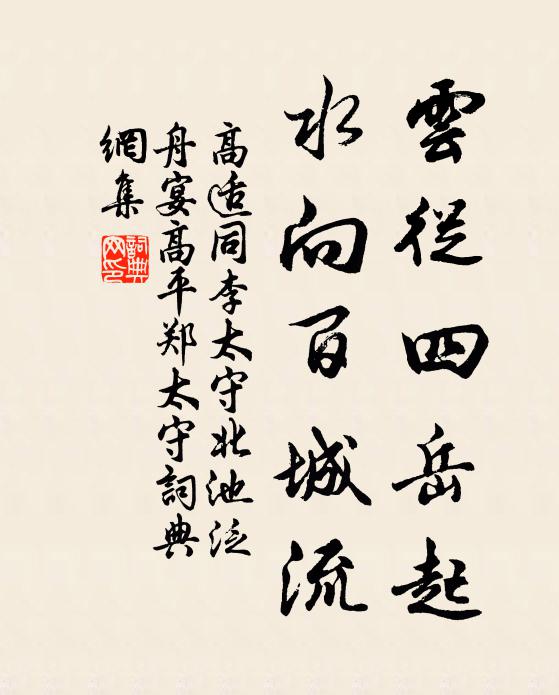 雲從四岳起
水向百城流
高适同李太守北池泛
舟宴高平郑太守詞典
網集
詞典
网印